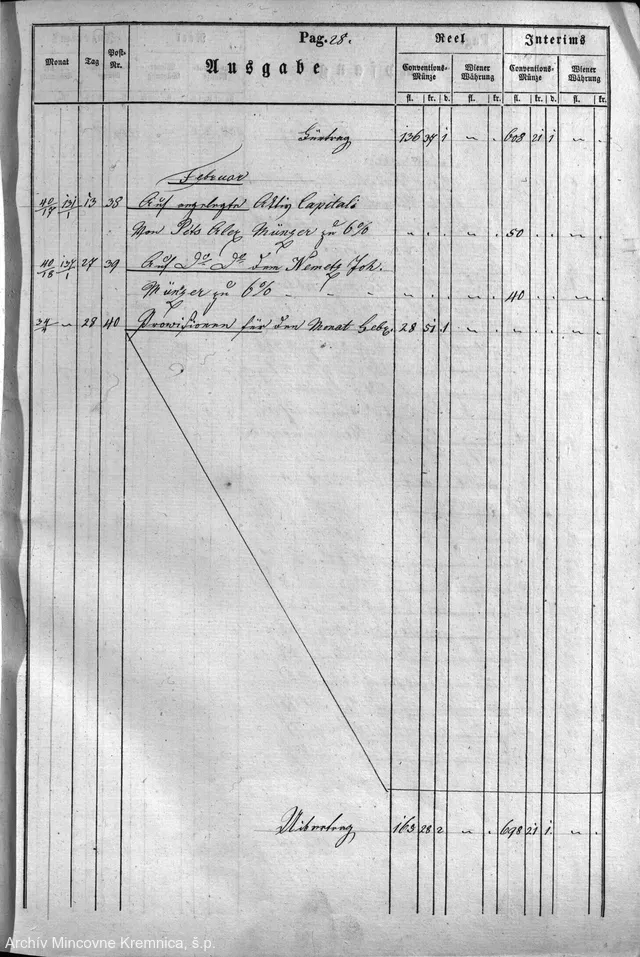 Pag. 28.
Ausgabe
Monat Tag Post-Nr.
Reel Interims
Conventions-Münze Wiener Währung Conventions-Münze Wiener Währung
fl. kr. d. fl. kr. fl. kr. d. fl. kr.
Fürtrag 136 37 1 " . 608 21 1 " .
Februar
40/17 131/1 13 38 Auf angelegte Aktiv Capitali
Von Münzer zu 6% " . . " . 50 . . " .
40/18 137/1 27 39 Auf Do Do dem Nemetz Joh.
Münzer zu 6% - - " " " . . " . 40 . . " .
" 28 40 Provisionen für den Monat Feb. 28 51 1 " . " . . " .
Uibertrag 163 28 2 " . 698 21 1 " .
Archív Mincovne Kremnica, š.p.